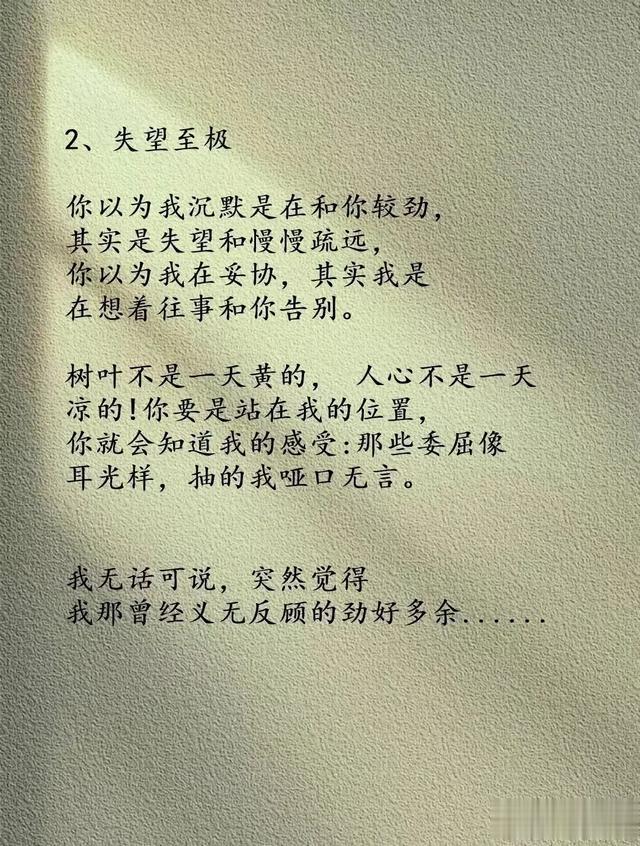 2、失望至极
你以为我沉默是在和你较劲,
其实是失望和慢慢疏远,
你以为我在妥协,其实我是
在想着往事和你告别。
树叶不是一天黄的, 人心不是一天
凉的!你要是站在我的位置,
你就会知道我的感受:那些委屈像
耳光样,抽的我哑口无言。
我无话可说,突然觉得
我那曾经义无反顾的劲好多余......